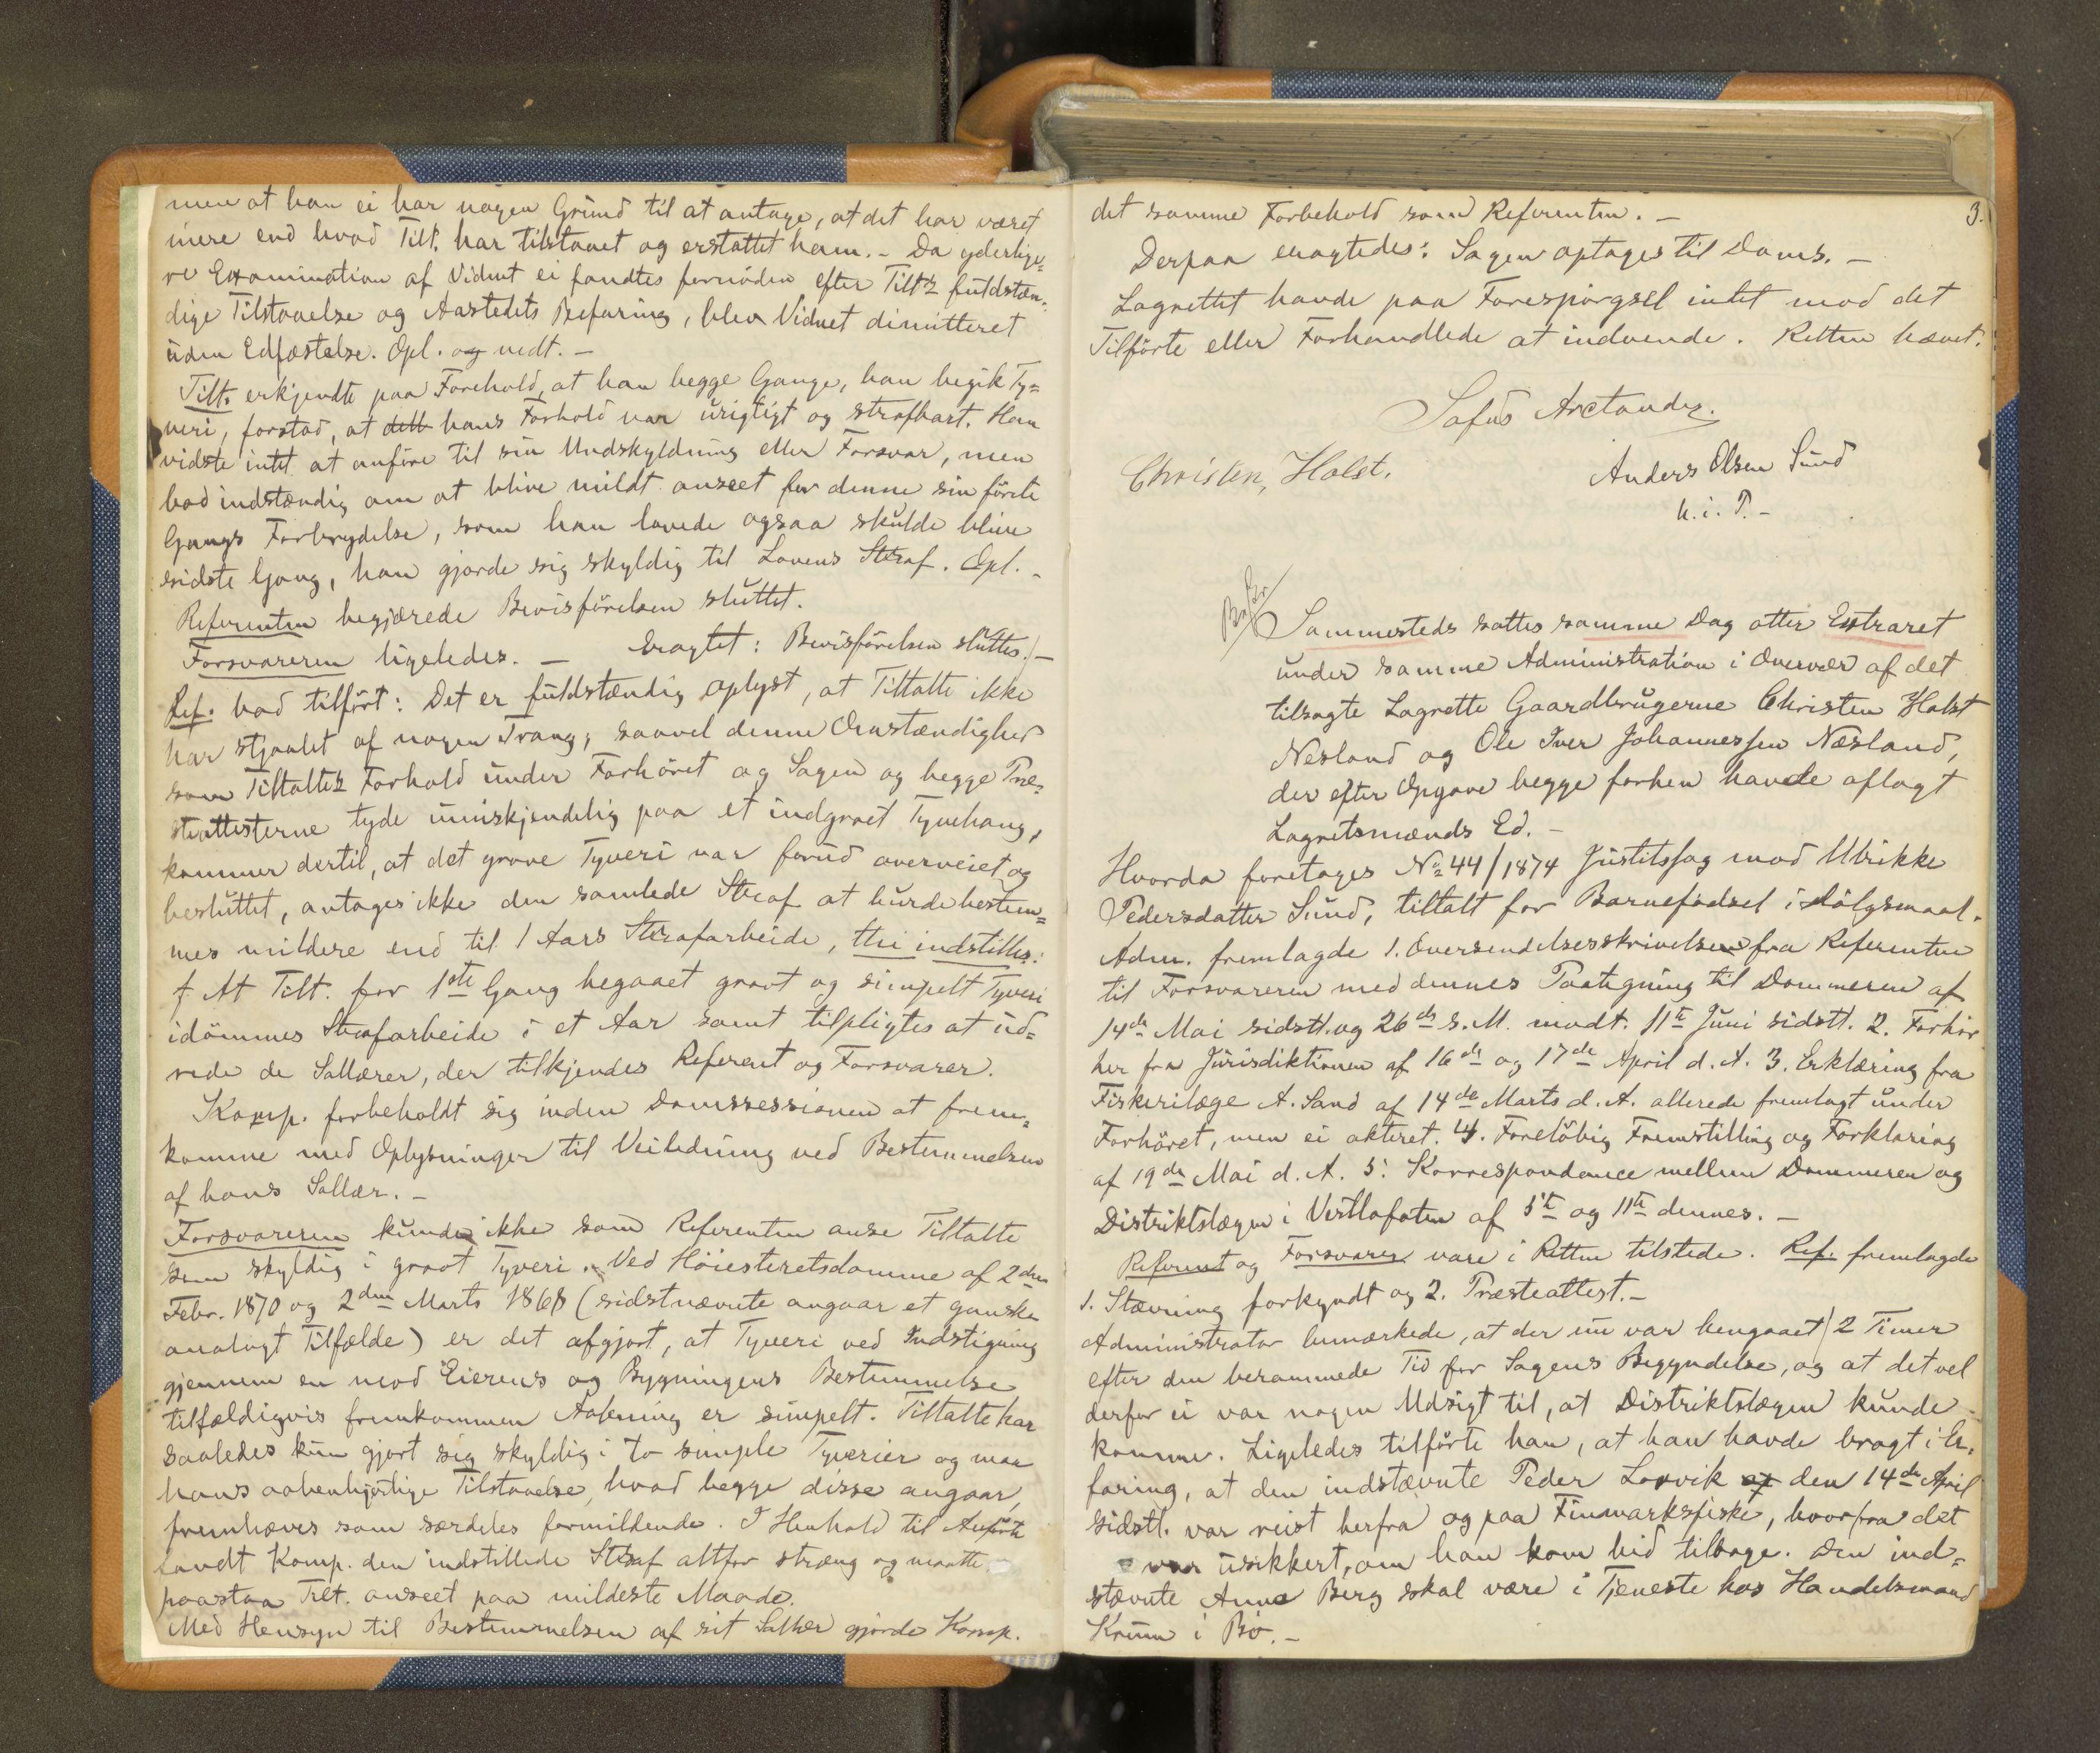 men at han ei har nogen Grund til at antage, at det har været
mere end hvad Tilt. har tilstaaet og erstattet ham. - Da yderlige=
re Examination af Vidnet ei fandtes fornöden efter Tilts fuldstæn=
dige Tilstaaelse og Aastedets Befaring, blev Vidnet dimitteret
uden Edfæstelse. Opl. og vedt. -
Tilt. erkjendte paa Forehold, at han begge Gange, han begik Ty=
veri, forstod, at dett hans Forhold var urigtigt og strafbart. Han
vidste intet at anföre til sin Undskyldning eller Forsvar, men
bad indstændig om at blive mildt anseet for denne sin förste
Gangs Forbrydelse, som han lovede ogsaa skulde blive
sidste Gang, han gjorde sig skyldig til Lovens Straf. Opl. -
Referenten begjærede Bevisförelsen sluttet.
Forsvareren ligeledes. - Eragtet: Bevisförelsen sluttes. -
Ref. bad tilfört: Det er fuldstændig oplyst, at Tiltalte ikke
har stjaalet af nogen Trang; saavel denne Omstændighed
som Tiltaltes Forhold under Forhöret og Sagen og begge Præ=
steattesterne tyde umiskjendelig paa et indgroet Tyvehang,
kommer dertil, at det grove Tyveri var forud overveiet og
besluttet, antages ikke den samlede Straf at burde bestem=
mes mildere end til 1 Aars Strafarbeide, thi indstilles:
At Tilt. for 1ste Gang begaaet grovt og simpelt Tyveri
idömmes Strafarbeide i et Aar samt tilpligtes at ud=
rede de Sallærer, der tilkjendes Referent og Forsvarer.
Komp. forbeholdt sig inden Domssessionen at frem=
komme med Oplysninger til Veiledning ved Bestemmelsen
af hans Sallær. -
Forsvareren kunde ikke som Referenten anse Tiltalte
som skyldig i grovt Tyveri. Ved Höiesteretsdomme af 2den
Febr. 1870 og 2den Marts 1868 (sidstnævnte angaar et ganske
analogt Tilfælde) er det afgjort, at Tyveri ved Indstigning
gjennem en mod Eierens og Bygningens Bestemmelse
tilfældigvis fremkommen Aabning er simpelt. Tiltalte har
saaledes kun gjort sig skyldig i to simple Tyverier og maa
hans aabenhjertige Tilstaaelse, hvad begge disse angaar,
fremhæves som særdeles formildende. I Henhold til Anförte
fandt Komp. den indstillede Straf altfor streng og maatte
paastaa Tilt. anseet paa mildeste Maade.
Med Hensyn til Bestemmelsen af sit Sallær gjorde Komp.
3.
det samme Forbehold som Referenten. -
Derpaa eragtedes: Sagen optages til Doms. -
Lagrettet havde paa Forespörgsel intet mod det
Tilförte eller Forhandlede at indvende. Retten hævet.
Sofus Arctander.
Christen, Holst.
Anders Olsen Sund
h. i. P. -
Sammesteds sattes samme Dag atter Extraret
under samme Administration i Overvær af det
tilsagte Lagrette Gaardbrugerne Christen Holst
Nesland og Ole Iver Johannessen Næsland,
der efter Opgave begge forhen havde aflagt
Lagretsmænds Ed. -
Hvorda foretages No 44/1874 Justitssag mod Ulrikke
Pedersdatter Sund, tiltalt for Barnefödsel i Dölgsmaal.
Adm. fremlagde 1. Oversendelsesskrivelse fra Referenten
til Forsvareren med dennes Paategning til Dommeren af
14de Mai sidstl. og 26de s. M. modt. 11te Juni sidstl. 2. Forhör
her fra Jurisdiktionen af 16de og 17de April d. A. 3. Erklæring fra
Fiskerilæge A. Sand af 14de Marts d. A. allerede fremlagt under
Forhöret, men ei akteret. 4. Forelöbig Fremstilling og Forklaring
af 19de Mai d. A. 5. Korrespondance mellem Dommeren og
Distriktslægen i Vestlofoten af 5te og 11te dennes. -
Referent og Forsvarer vare i Retten tilstede. Ref. fremlagde
1. Stævning forkyndt og 2. Præsteattest. -
Administrator bemærkede, at der nu var hengaaet 2 Timer
efter den berammede Tid for Sagens Begyndelse, og at det vel
derfor ei var nogen Udsigt til, at Distriktslægen kunde
komme. Ligeledes tilförte han, at han havde bragt i Er=
faring, at den indstævnte Peder Lorvik den 14de April
sidstl. var reist herfra og paa Finmarksfiske, hvorfra det
var usikkert, om han kom hid tilbage. Den ind=
stævnte Anne Berg skal være i Tjeneste hos Handelsmand
Krum i Bö. -